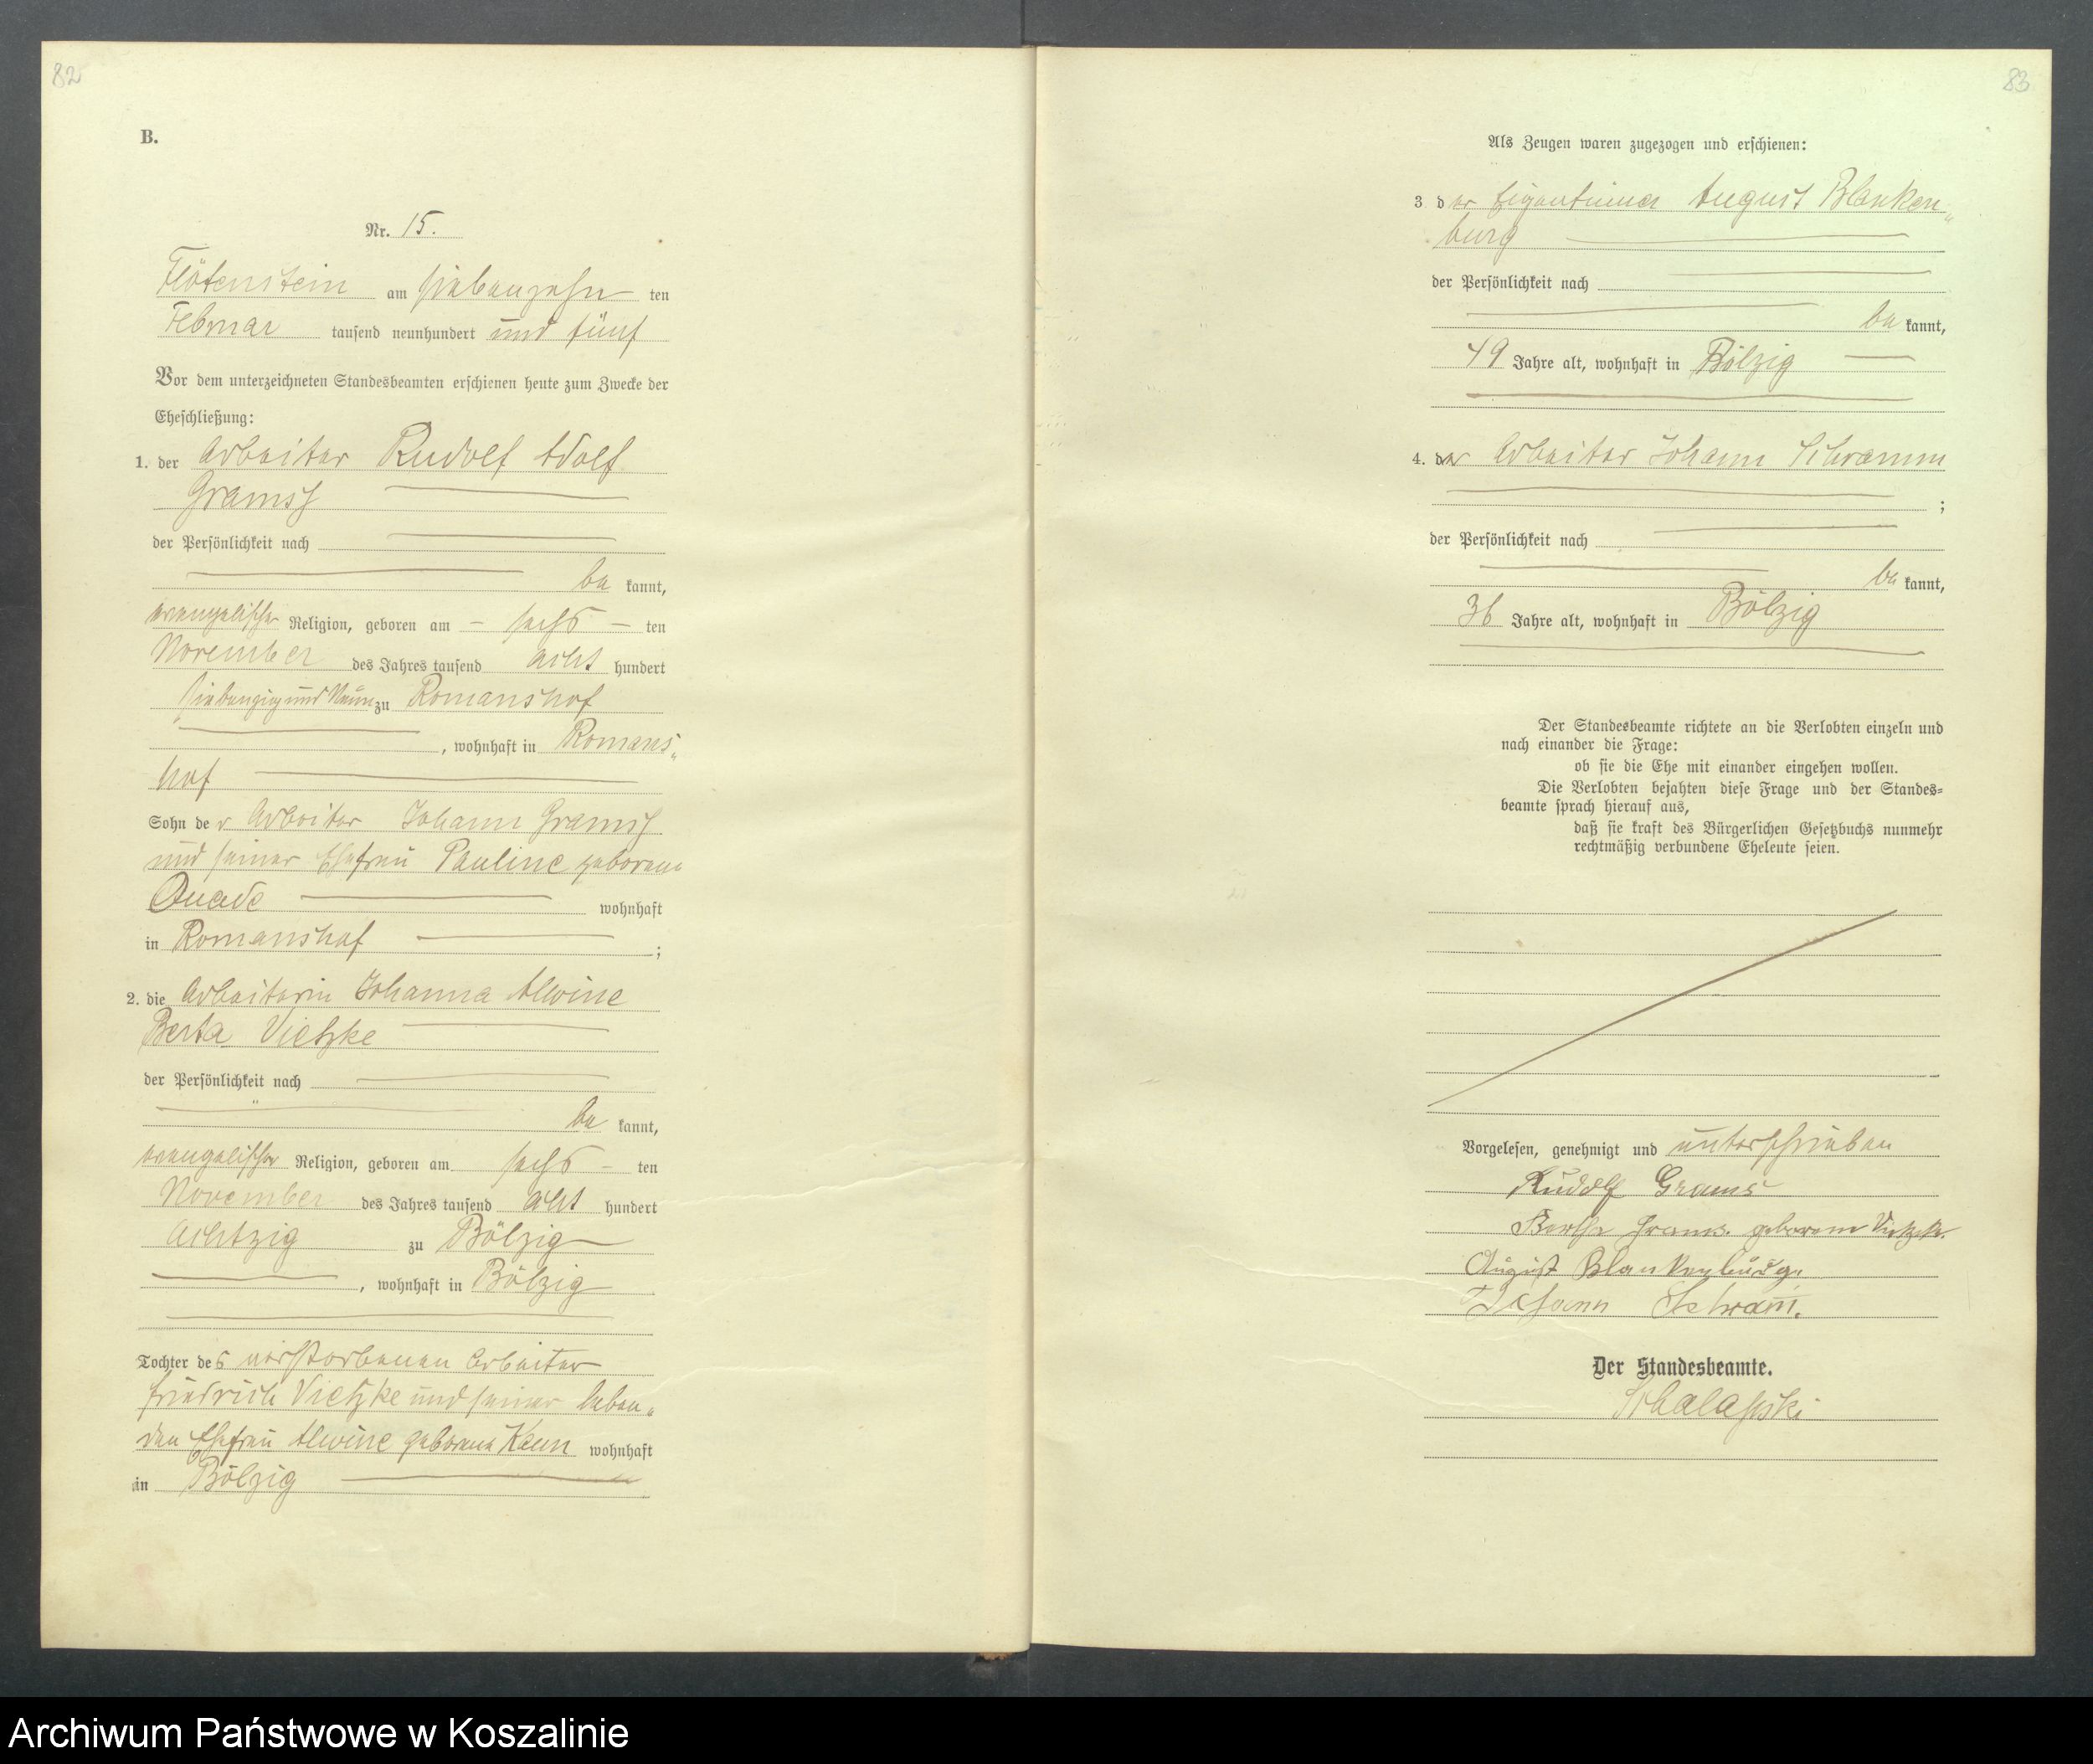 82
B.
Nr. 15.
Flötenstein am siebenzehn ten
Februar tausend neunhundert und fünf
Vor dem unterzeichneten Standesbeamten erschienen heute zum Zwecke der
Eheschließung:
1. der Arbeiter Rudolf Adolf
Grams
der Persönlichkeit nach
be kannt,
evangelischer Religion, geboren am – sechs – ten
November des Jahres tausend acht hundert
siebenzig und Neun zu Romanshof
, wohnhaft in Romans„
hof
Sohn der Arbeiter Johann Grams
und seiner Ehefrau Pauline geborene
Quade wohnhaft
in Romanshof ;
2. die Arbeiterin Johanna Alwine
Berta Vietzke
der Persönlichkeit nach
be kannt,
evangelischer Religion, geboren am sechs – ten
November des Jahres tausend acht hundert
achtzig zu Bölzig
, wohnhaft in Bölzig
Tochter des verstorbenen Arbeiter
Friedrich Vietzke und seiner leben„
den Ehefrau Alwine geborene wohnhaft
in Bölzig
83
Als Zeugen waren zugezogen und erschienen:
3 der Eigentümer August Blanken„
burg
der Persönlichkeit nach
be kannt,
49 Jahre alt, wohnhaft in Bölzig
4. der Arbeiter Johann Schramm
;
der Persönlichkeit nach
be kannt,
36 Jahre alt, wohnhaft in Bölzig
Der Standesbeamte richtete an die Verlobten einzeln und
nach einander die Frage:
ob sie die Ehe mit einander eingehen wollen.
Die Verlobten bejahten diese Frage und der Standes=
beamte sprach hierauf aus,
daß sie kraft des Bürgerlichen Gesetzbuchs nunmehr
rechtmäßig verbundene Eheleute seien.
Vorgelesen, genehmigt und unterschrieben
Rudolf Grams
Bertha Grams. geborene Vietzke.
August Blankenburg.
Johann Schram̄.
Der Standesbeamte.
Archiwum Państwowe w Koszalinie